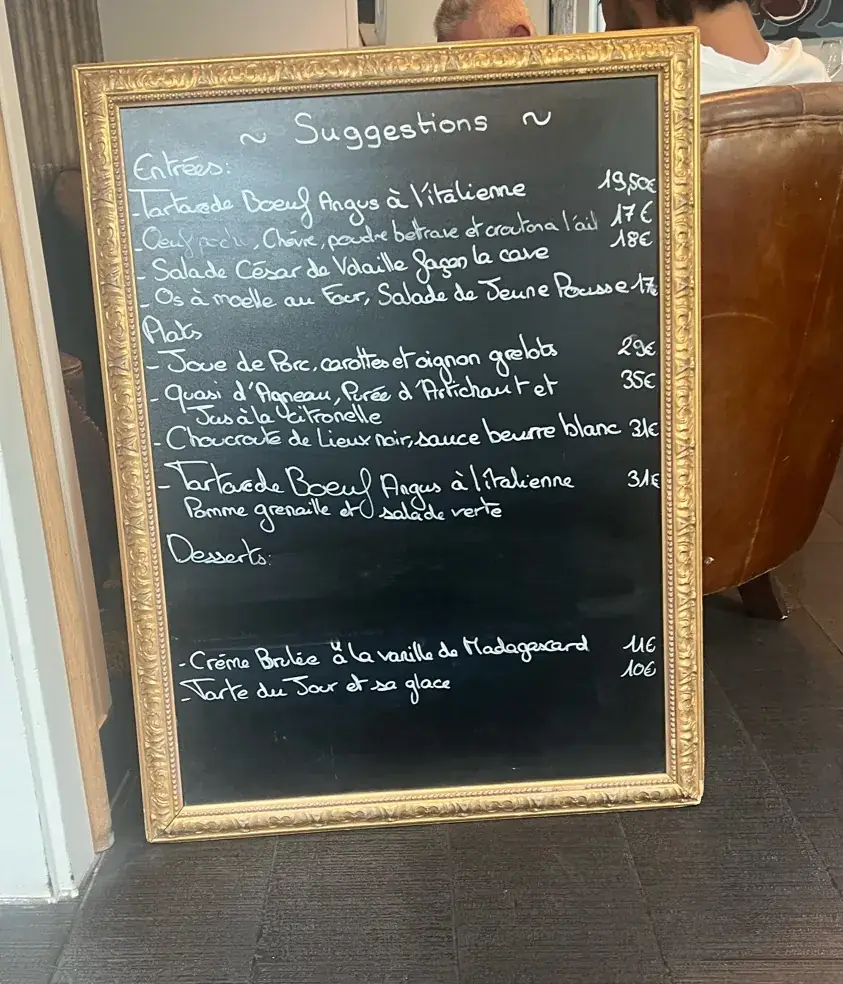 ~ Suggestions ~
Entrées:
- Tartare de Boeuf Angus à l'italienne 19,50€
- Oeuf poché, Chèvre, poudre betrave et crouton a l'ail 17€
- Salade César de Volaille façon la cave 18€
- Os à moelle au Four, Salade de Jeune Pousse 17€
Plats
- Joue de Porc, carottes et oignon grelots 29€
- Quasi d'Agneau, Purée d'Artichaut et 35€
Jus à la Citronelle
- Choucroute de Lieux noir, sauce beurre blanc 31€
- Tartare de Boeuf Angus à l'italienne 31€
Pomme grenaille et salade verte
Desserts:
- Créme Brulée à la vanille de Madagascard 11€
- Tarte du Jour et sa glace 10€